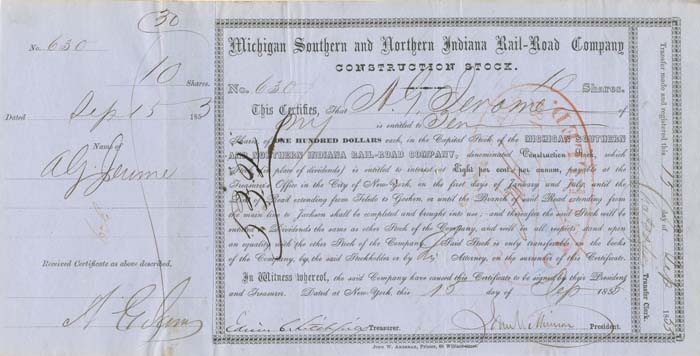 30
No. 630
10 Shares.
Dated Sep 15 1853
Name of
A G Jerome
Received Certificate as above described.
Michigan Southern and Northern Indiana Rail-Road Company
CONSTRUCTION STOCK.
No. 630 10 Shares.
This Certifies, That A. G. Jerome of
NY is entitled to Ten
Shares of ONE HUNDRED DOLLARS each, in the Capital Stock of the MICHIGAN SOUTHERN
AND NORTHERN INDIANA RAIL-ROAD COMPANY, denominated Construction Stock, which
place of dividends) is entitled to interest at Eight per cent per annum, payable at the
Treasurer's Office in the City of New-York, on the first days of January and July, until the
Road extending from Toledo to Goshen, or until the Branch Road extending from
the main line to Jackson shall be completed and brought into use; and thereafter the said Stock will be
Dividends the same as other Stock of the Company, and will in all respects stand upon
an equality with the other Stock of the Company. Said Stock is only transferable on the books
of the Company, by the said Stockholder or by his Attorney, on the surrender of this Certificate.
In Witness whereof, the said Company have caused this Certificate to be signed by their President
and Treasurer. Dated at New-York, this 15 day of Sep 1853
Treasurer.
President.
JOHN W. AMERMAN, Printer, 60 William-street.
Transfer made and registered this 15 day of 185
Transfer Clerk.